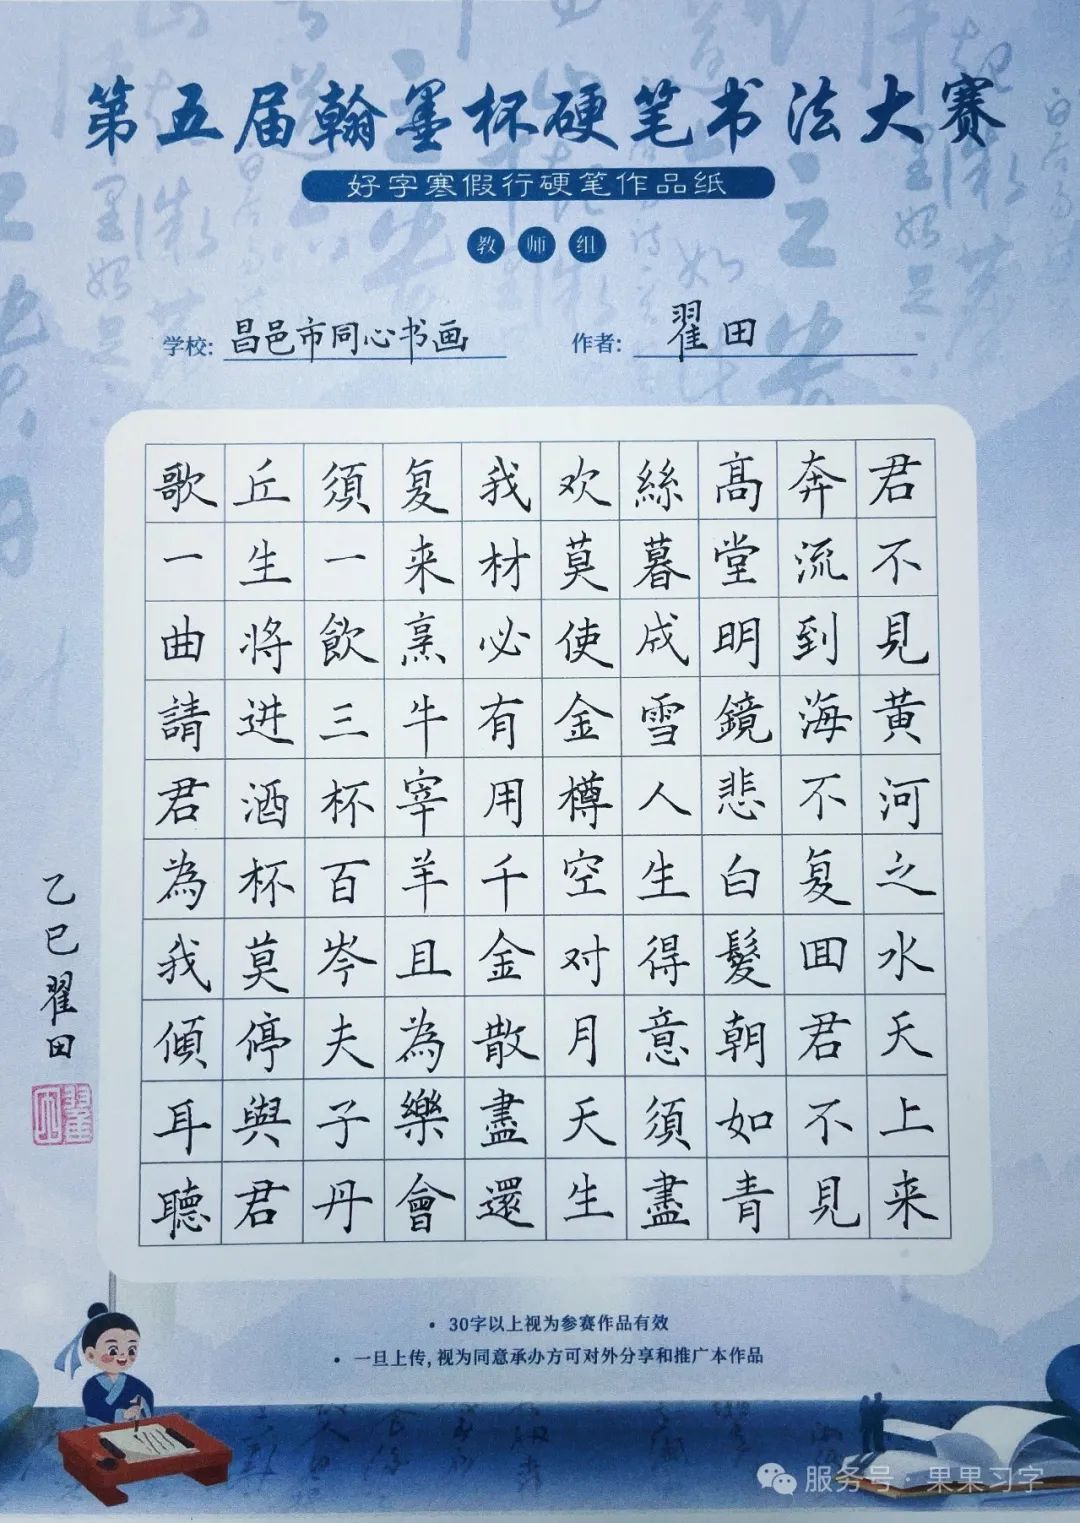 第五届翰墨杯硬笔书法大赛
好字寒假行硬笔作品纸
教师组
学校: 昌邑市同心书画
作者: 翟田
君不見黄河之水天上来
奔流到海不复囬君不見
髙堂明鏡悲白髮朝如青
絲暮成雪人生得意須盡
欢莫使金樽空对月天生
我材必有用千金散盡還
复来烹牛宰羊且為樂會
須一飲三杯百岑夫子丹
丘生将进酒杯莫停與君
歌一曲請君為我傾耳聽
乙巳翟田
• 30字以上视为参赛作品有效
• 一旦上传,视为同意承办方可对外分享和推广本作品
服务号·果果习字